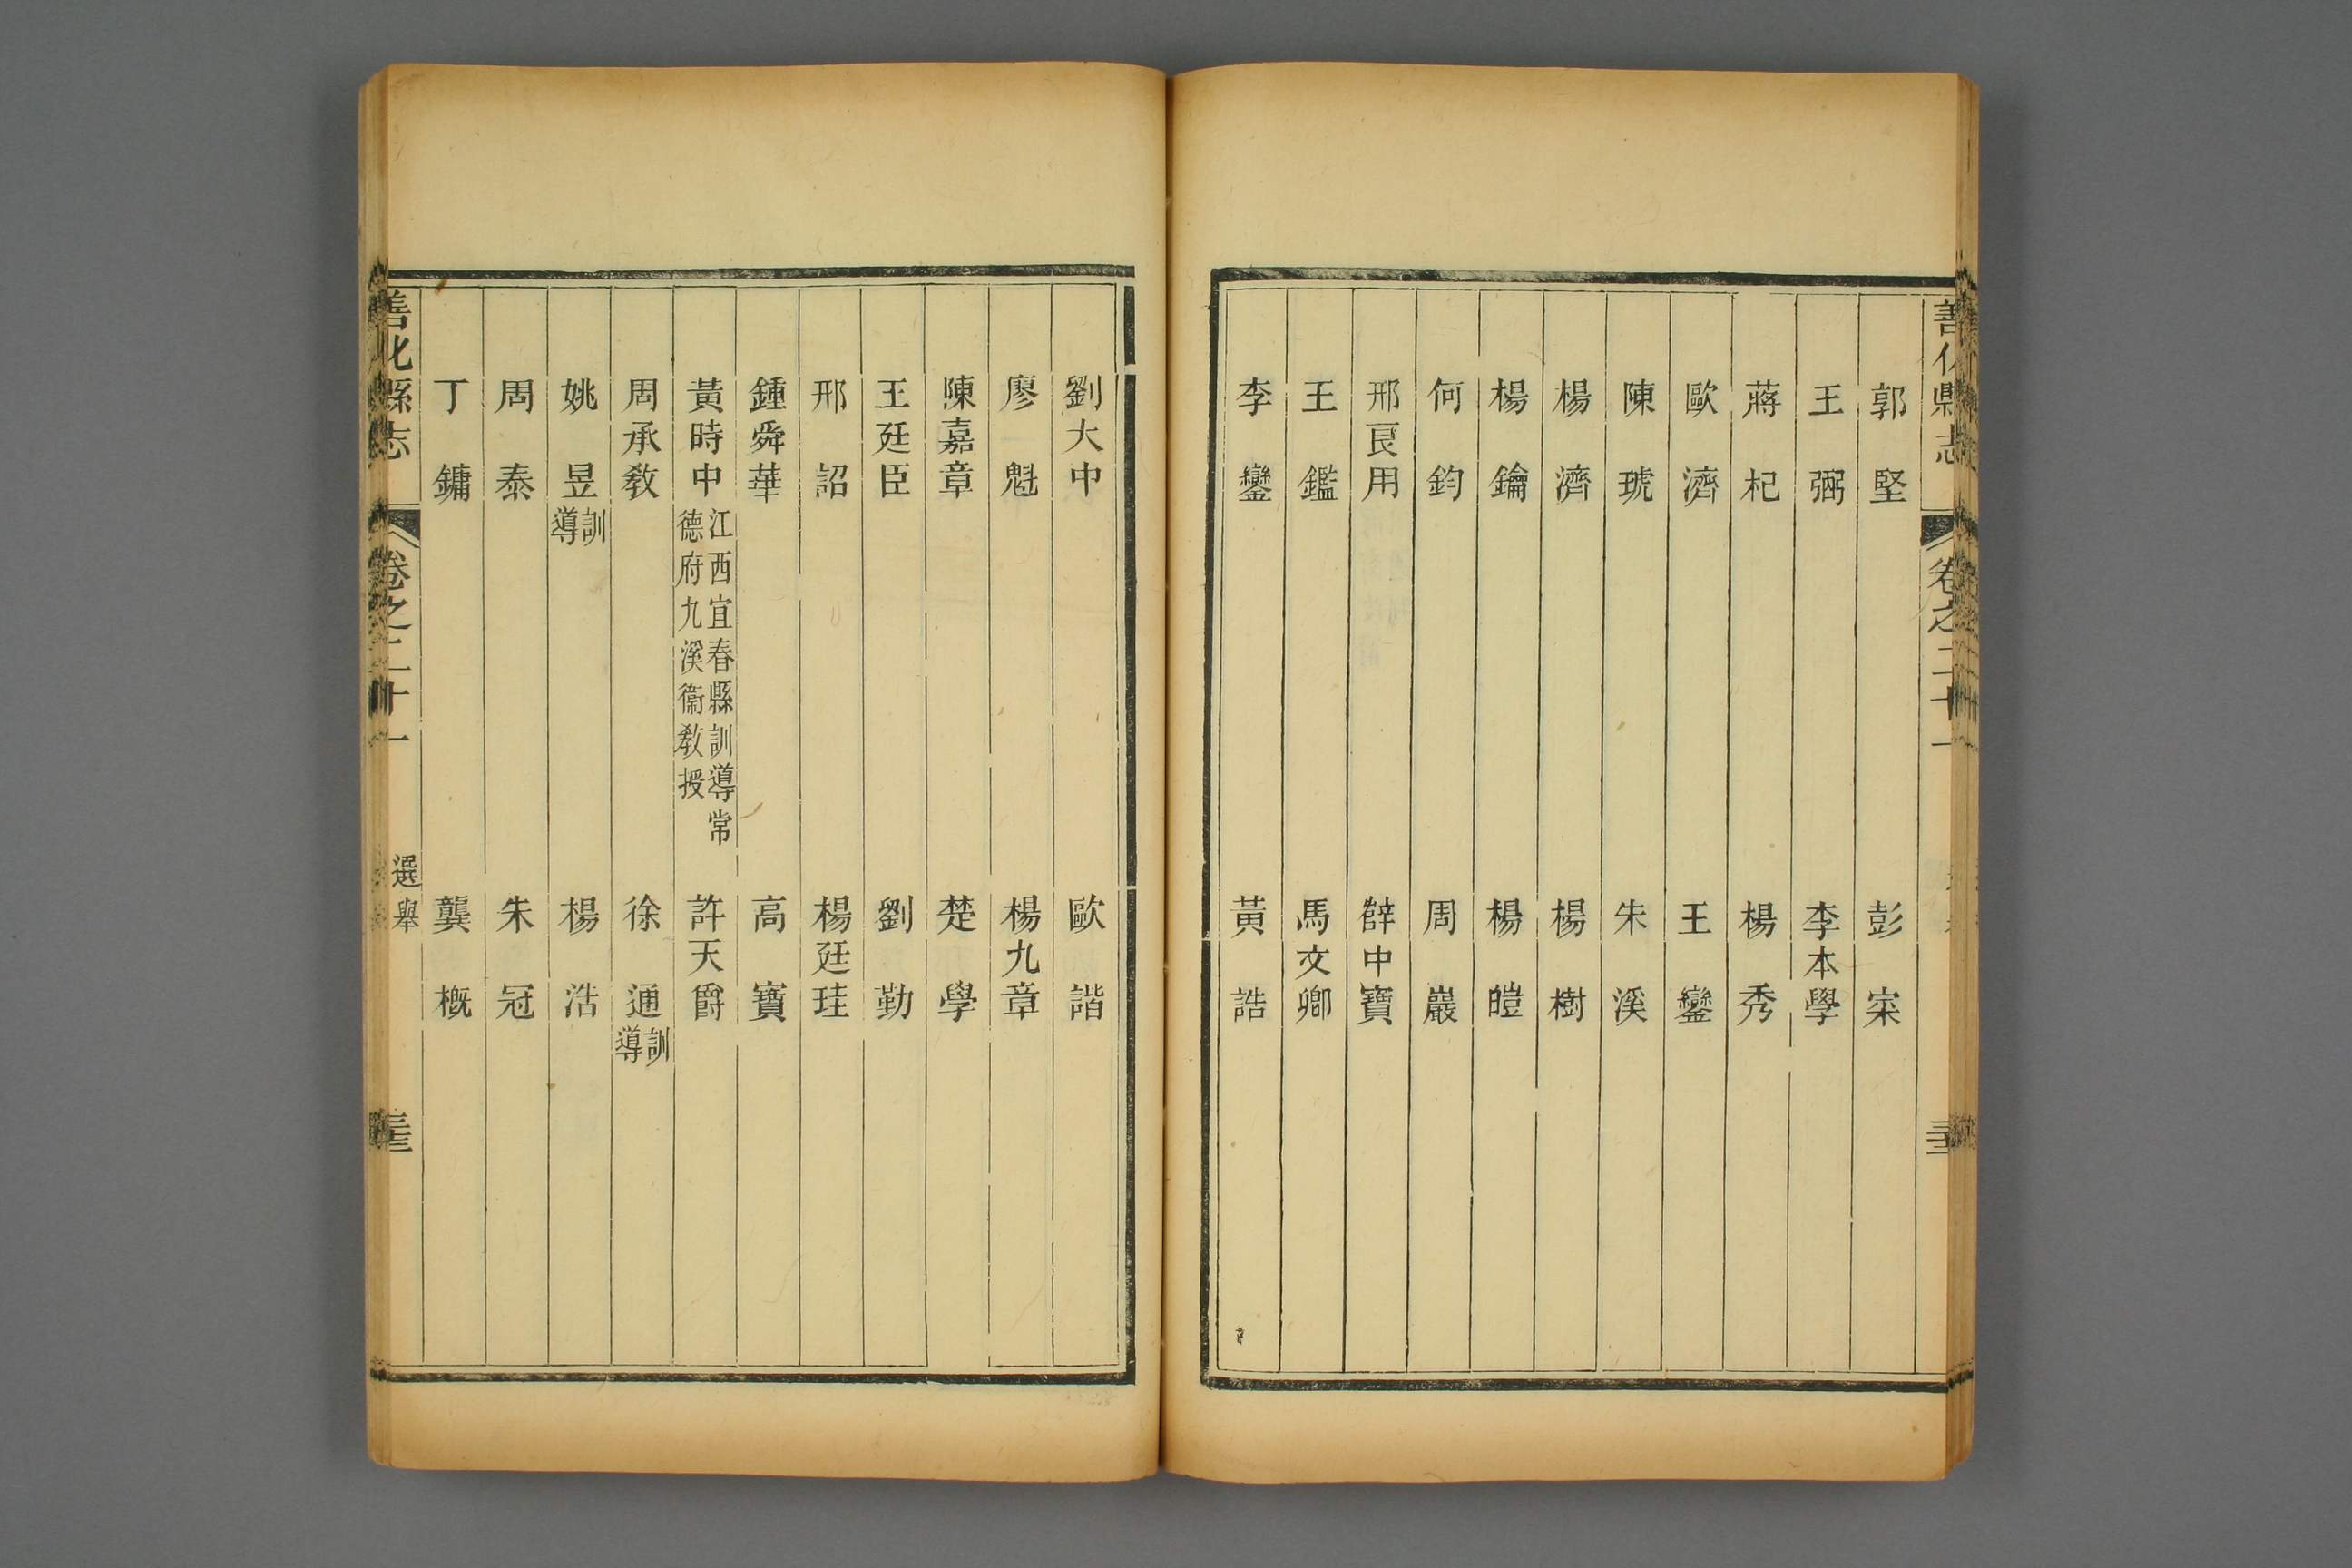 善化縣志 卷之二十一
郭堅 彭寀
王弼 李本學
蔣杞 楊秀
歐濟 王鑾
陳琥 朱溪
楊濟 楊樹
楊鑰 楊暟
何鈞 周巖
邢良用 薛中寶
王鑑 馬文卿
李鑾 黃誥
劉大中 歐諧
廖魁 楊九章
陳嘉章 楚學
王廷臣 劉勤
邢詔 楊廷珪
鍾舜華 高寶
黃時中 江西宜春縣訓導常德府九溪衞教授 許天爵
周承敎 徐通 訓導
姚昱 訓導 楊浩
周泰 朱冠
丁鏞 龔概
善化縣志 卷之二十一 選舉